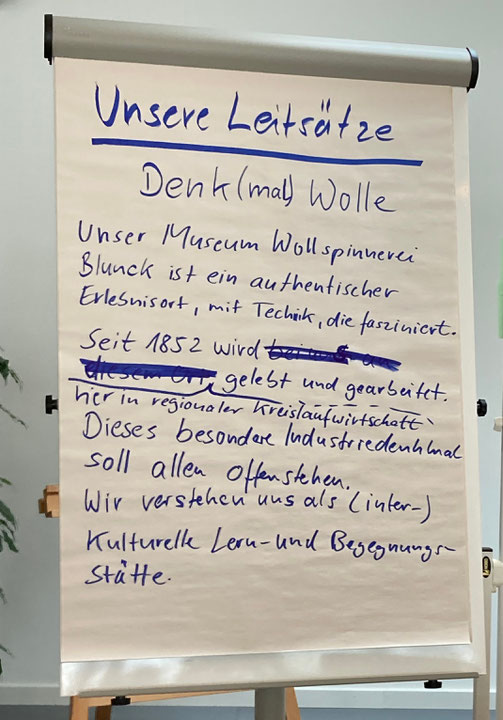 Unsere Leitsätze
Denk(mal) Wolle
Unser Museum Wollspinnerei
Blunck ist ein authentischer
Erlebnisort, mit Technik, die fasziniert.
Seit 1852 wird bei uns an
diesem Ort gelebt und gearbeitet.
hier in regionaler Kreislaufwirtschaft
Dieses besondere Industriedenkmal
soll allen offenstehen.
Wir verstehen uns als (inter-)
Kulturelle Lern- und Begegnungs-
stätte.